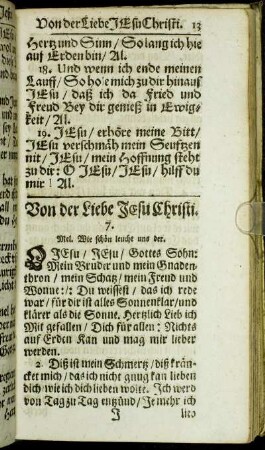 Von der Liebe JEsu Christi. 13
Hertz und Sinn / So lang ich hie
auf Erden bin / Al.
18. Und wenn ich ende meinen
Lauff / So hole mich zu dir hinauf
JEsu / daß ich da Fried und
Freud Bey dir genieß in Ewig-
keit / Al.
19. JEsu / erhöre meine Bitt /
JEsu verschmäh mein Seuftzen
nit / JEsu / mein Hoffnung steht
zu dir: O JEsu / JEsu / hilff du
mir ! Al.
Von der Liebe JEsu Christi.
7.
Mel. Wie schön leucht uns der.
O JEsu / JEsu / Gottes Sohn:
Mein Bruder und mein Gnaden-
thron / mein Schatz / mein Freud und
Wonne: /: Du weissest / das ich rede
war / für dir ist alles Sonnenklar / und
klärer als die Sonne. Hertzlich Lieb ich
Mit gefallen / Dich für allen: Nichts
auf Erden Kan und mag mir lieber
werden.
2. Diß ist mein Schmertz / diß krän-
cket mich / das ich nicht gnug kan lieben
dich wie ich dich lieben wolte. Ich werd
von Tag zu Tag entzünd / Je mehr ich